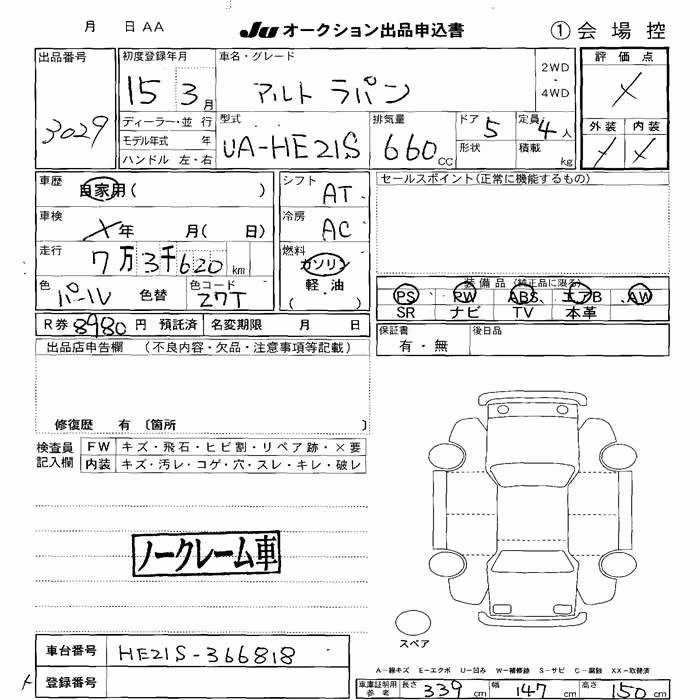 月 日 AA
JU オークション出品申込書
① 会場控
出品番号
3029
初度登録年月
15 3月
車名・グレード
アルト ラパン
2WD
・
4WD
評価点
×
外装 内装
× ×
ディーラー・並行
モデル年式 年
ハンドル 左・右
型式
UA-HE21S
排気量
660cc
ドア 5
形状
定員 4人
積載 kg
車歴
自家用( )
車検
×年 月( 日)
走行
7万3千620km
色
パール 色替
色コード
Z7T
シフト
AT
冷房
AC
燃料
ガソリン
軽油
( )
R券 8980円 預託済
名変期限 月 日
セールスポイント(正常に機能するもの)
装備品(純正品に限る)
PS PW ABS、エアB AW
SR ナビ TV 本革
保証書
有・無
後日品
出品店申告欄 (不良内容・欠品・注意事項等記載)
修復歴 有 〔箇所 〕
検査員
記入欄
FW キズ・飛石・ヒビ割・リペア跡・×要
内装 キズ・汚レ・コゲ・穴・スレ・キレ・破レ
ノークレーム車
スペア
車台番号 HE21S-366818
登録番号
A-線キズ E-エクボ U-凹み W-補修跡 S-サビ C-腐蝕 XX-取替済
車庫証明用
参考
長さ 339cm 幅 147cm 高さ 150cm